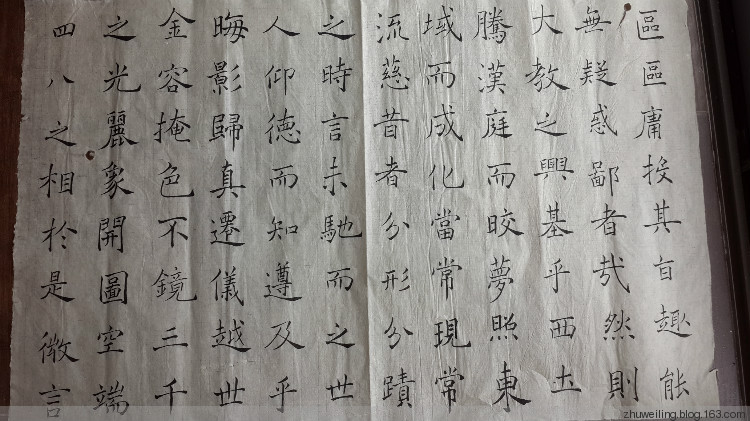 區區庸投其旨趣能
無疑惑鄙者哉然則
大教之興基乎西土
騰漢庭而晈夢照東
域而成化當常現常
流慈昔者分形分蹟
之時言未馳而之世
人仰德而知遵及乎
晦影歸真遷儀越世
金容掩色不鏡三千
之光麗象開圖空端
四八之相於是微言
zhuweiling.blog.163.com